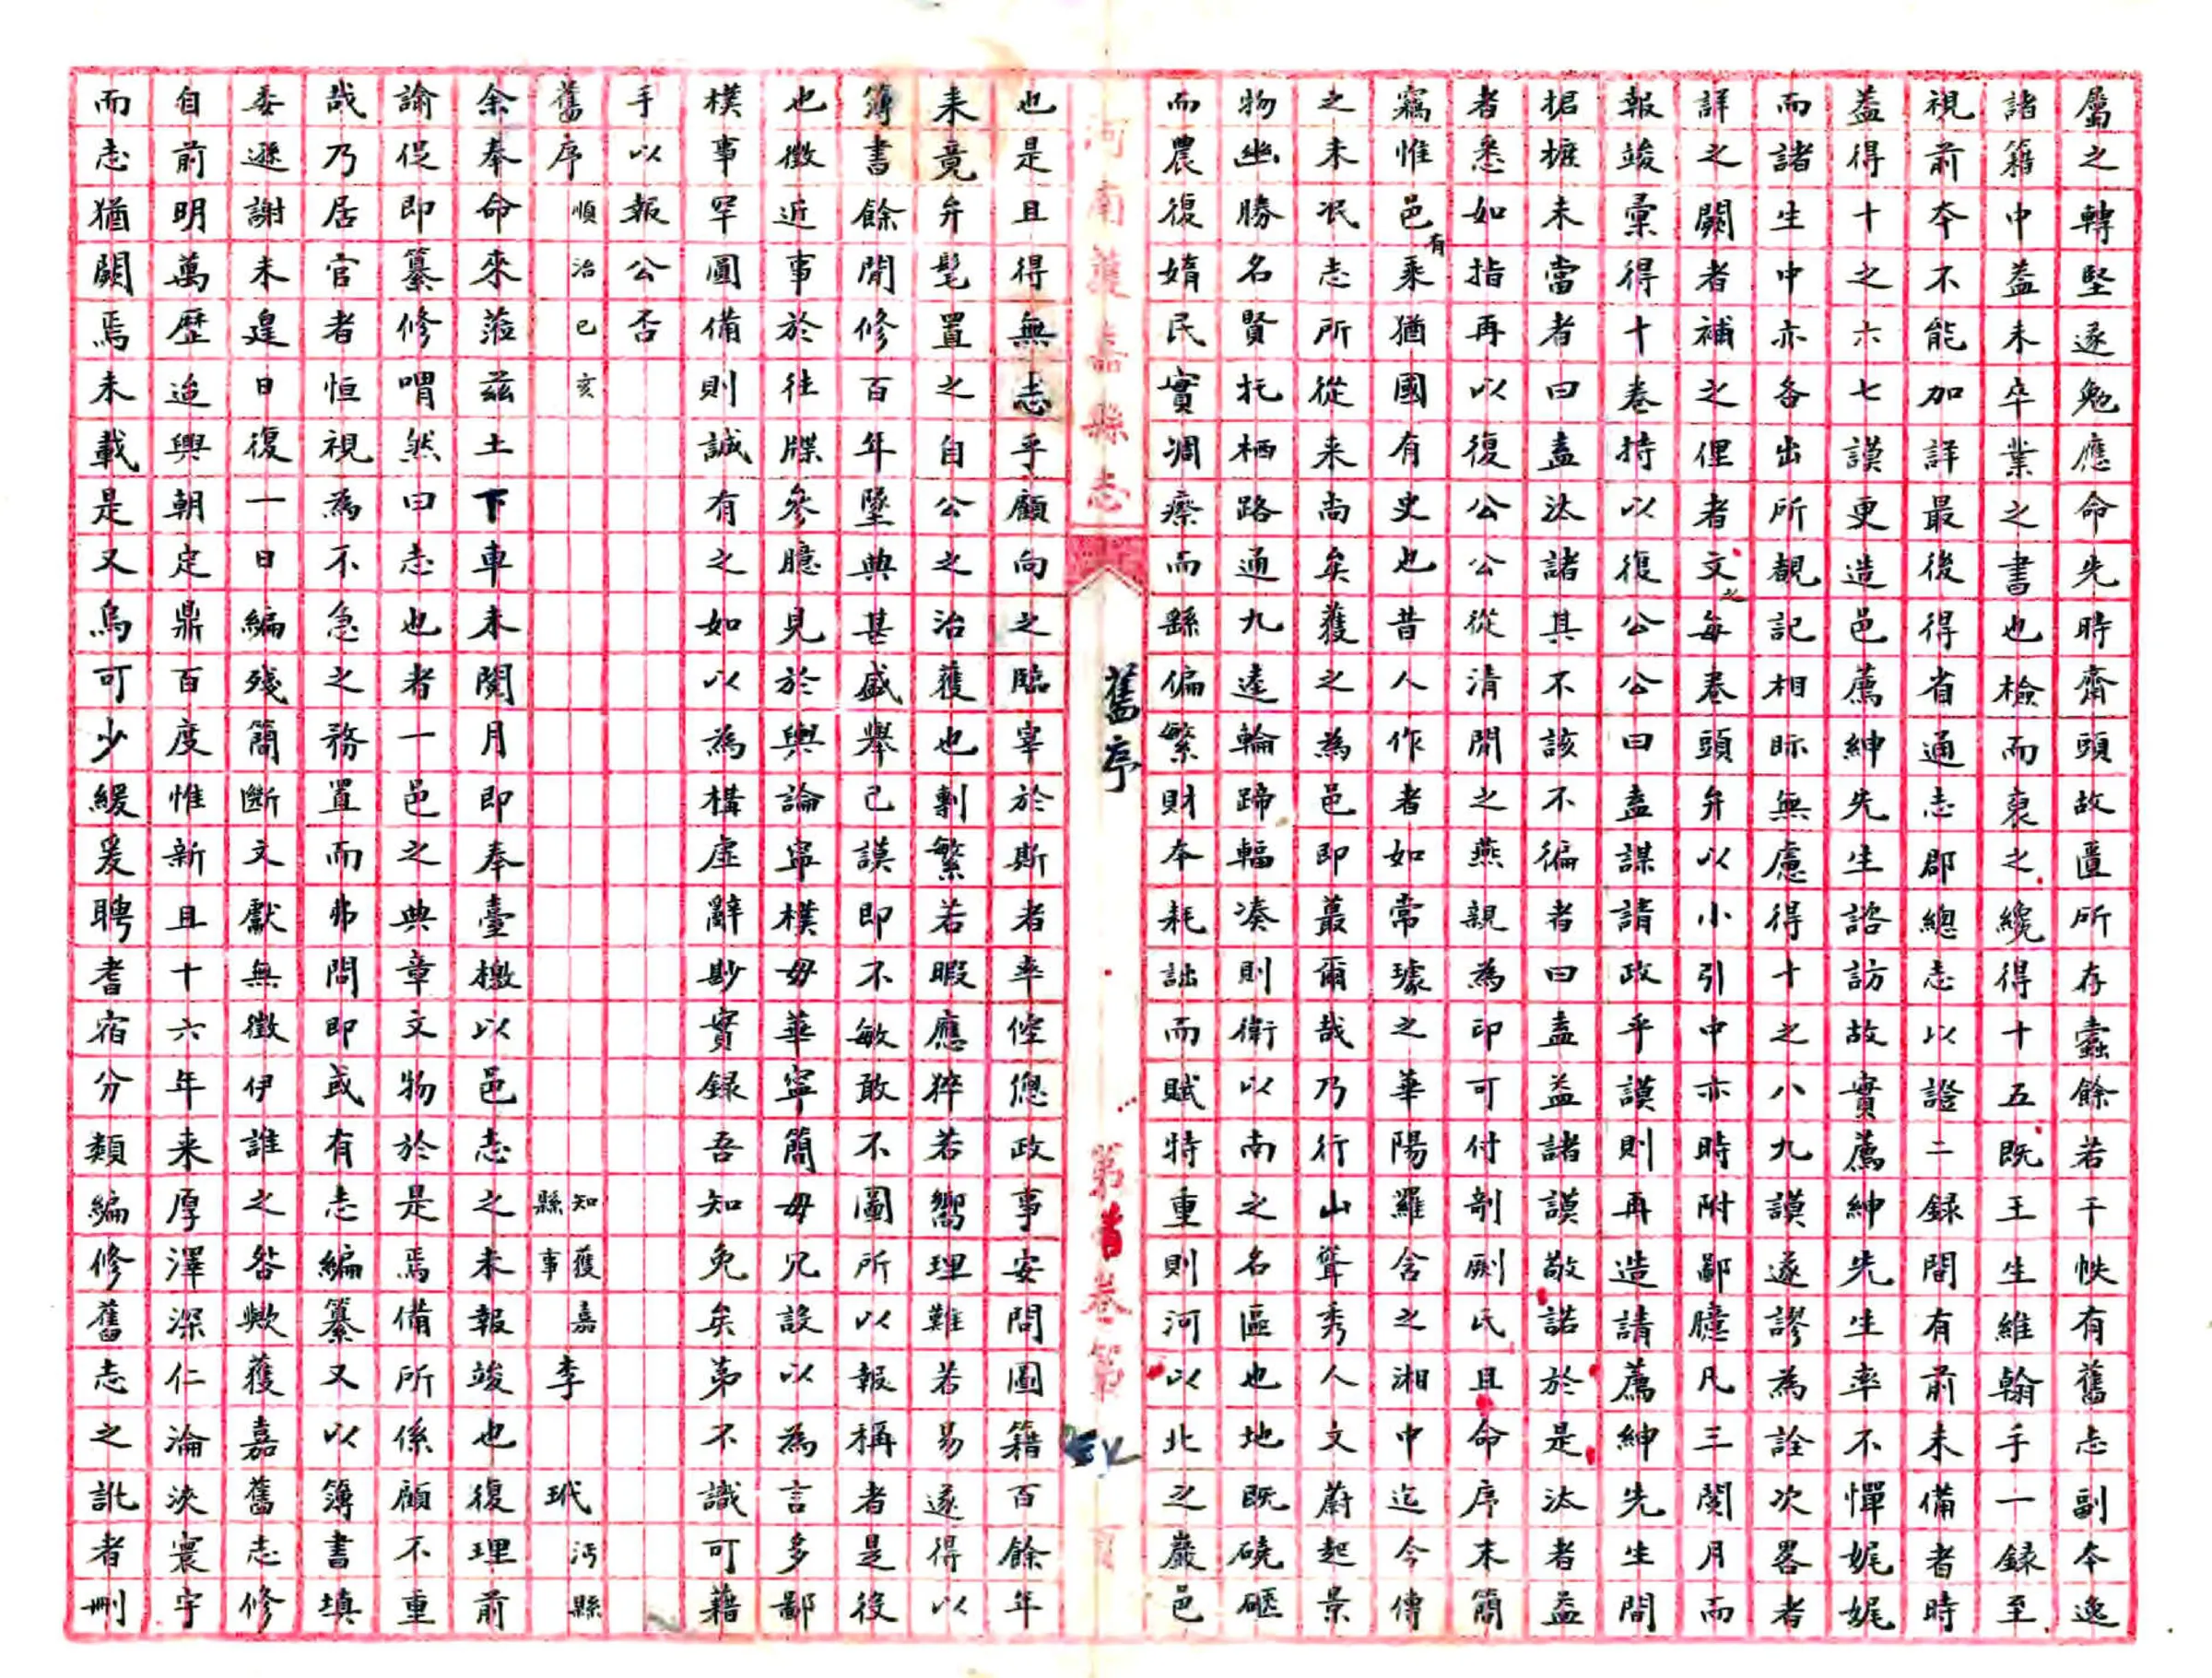 屬之轉堅遂勉應命先時齋頭故匱所存蠹餘若干帙有舊志副本逸
諸籍中蓋未卒業之書也檢而裒之纔得十五既王生維翰手一録至
視前本不能加詳最後得省通志郡總志以證二録間有前未備者時
蓋得十之六七謨更造邑薦紳先生諮訪故實薦紳先生率不憚娓娓
而諸生中亦各出所覩記相眎無慮得十之八九謨遂謬為詮次畧者
詳之闕者補之俚者文之每卷頭弁以小引中亦時附鄙臆凡三閱月而
報竣彙得十卷持以復公公曰盍謀請政乎謨則再造請薦紳先生間
据摭未當者曰盍汰諸其不該不徧者曰盍益諸謨敬諾於是汰者益
者悉如指再以復公公從清閒之燕親為印可付剞劂氏且命序末簡
竊惟邑有乘猶國有史也昔人作者如常璩之華陽羅含之湘中迄今傳
之未泯志所從来尚矣獲之為邑即蕞爾哉乃行山聳秀人文蔚起景
物幽勝名賢托栖路通九逵輪蹄輻湊則衛以南之名區也地既磽磘
而農復媠民實凋瘵而縣偏繁財本耗詘而賦特重則河以北之巖邑
河南獲嘉縣志
舊序
第首卷第 頁
也是且得無志乎顧向之臨宰於斯者率倥傯政事安問圖籍百餘年
来竟弁髦置之自公之治獲也剸繁若暇應猝若嚮理難若易遂得以
簿書餘閒修百年墜典甚盛舉已謨即不敏敢不圖所以報稱者是役
也徵近事於往牒參臆見於輿論寧樸毋華寧簡毋冗設以為言多鄙
樸事罕圓備則誠有之如以為構虛辭尠實録吾知免矣第不識可藉
手以報公否
舊序 順治己亥 知縣事獲嘉 李玳 沔縣
余奉命來蒞兹土下車未閱月即奉臺檄以邑志之未報竣也復理前
諭促即纂修喟然曰志也者一邑之典章文物於是焉備所係顧不重
哉乃居官者恒視為不急之務置而弗問即或有志編纂又以簿書填
委遜謝未遑日復一日編殘簡斷文獻無徵伊誰之咎歟獲嘉舊志修
自前明萬歷迨興朝定鼎百度惟新且十六年来厚澤深仁淪浹寰宇
而志猶闕焉未載是又烏可少緩爰聘耆宿分類編修舊志之訛者刪